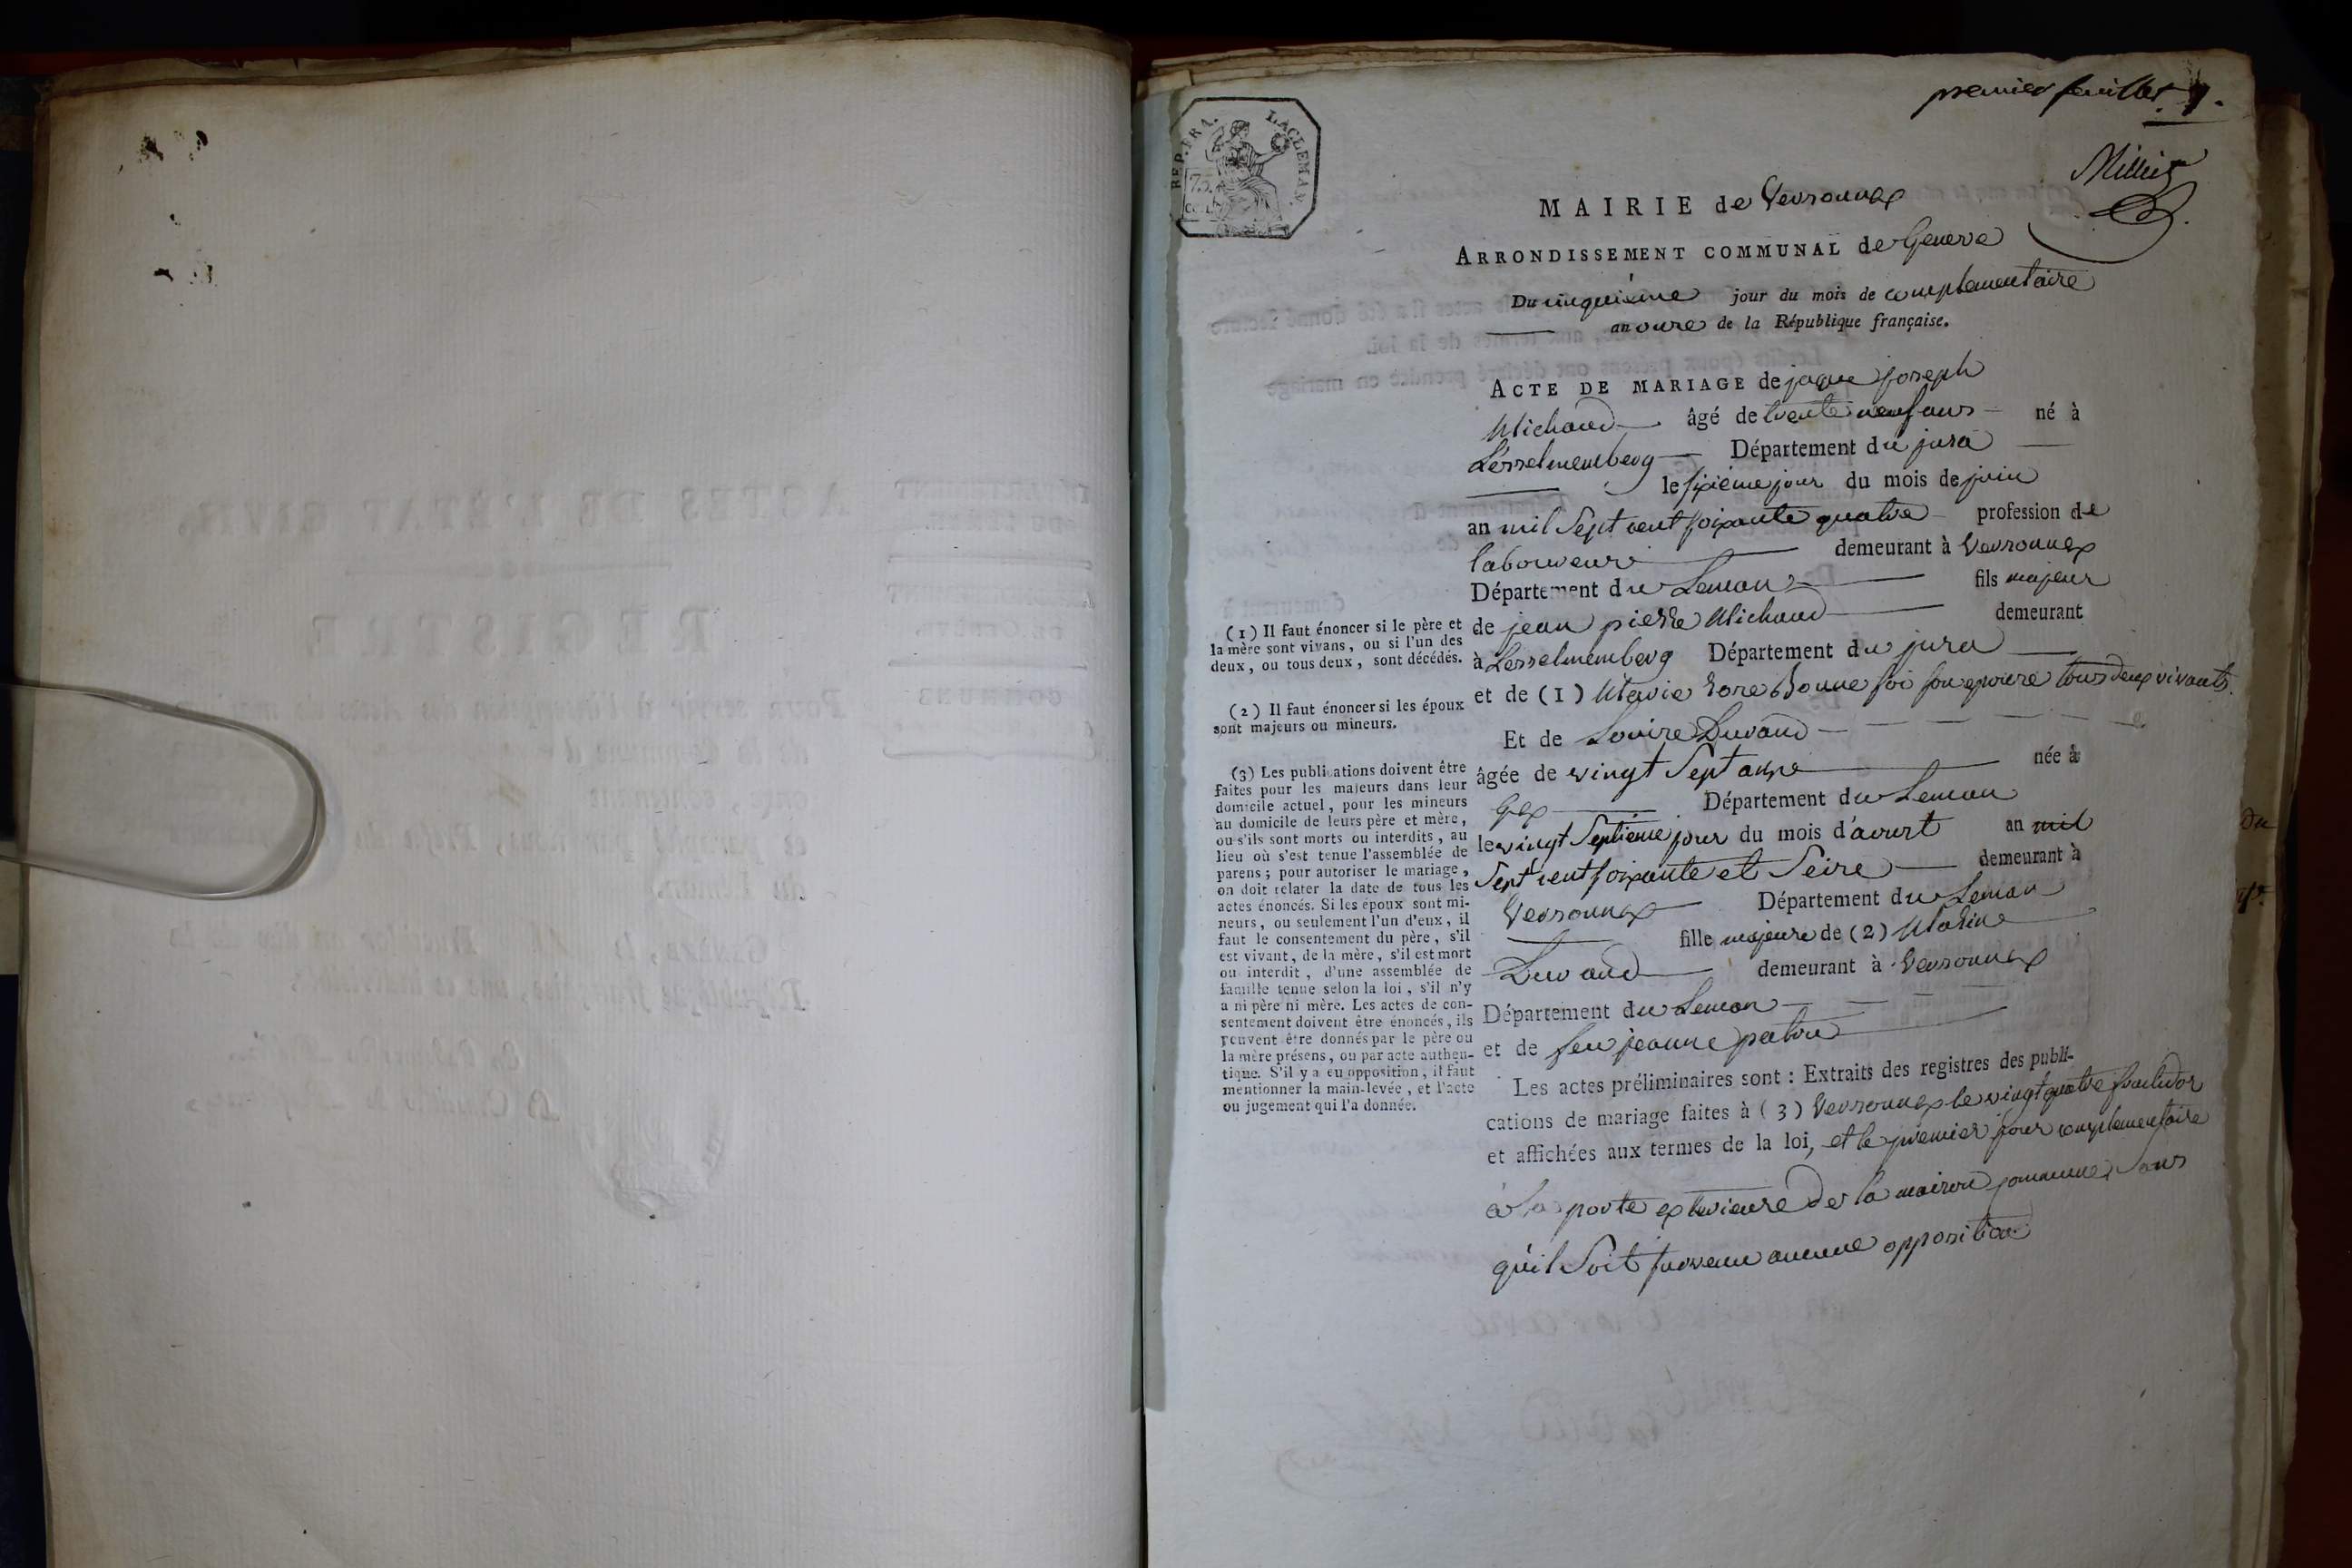 premier feuillet 1.
Milliet
REP. FRA.
LAGLEMAN.
75
MAIRIE de Versonnex
ARRONDISSEMENT COMMUNAL de Geneve
Du cinquième jour du mois de complementaire
an onze de la République française.
ACTE DE MARIAGE de jaque joseph
Michaud âgé de trente neuf ans né à
Lesselmemberg Département du jura
le sixième jour du mois de juin
an mil Sept cent soixante quatre profession de
laboureur demeurant à Versonnex
Département du Leman fils majeur
de jean pierre Michaud demeurant
à Lesselmemberg Département du jura
et de (1) Marie Rose Bonne foi son epouse tous deux vivants.
Et de Louise Duvand
âgée de vingt Sept ans née à
Gex Département du Leman
le vingt Septieme jour du mois d'avust an mil
Sept cent soixante et Seize demeurant à
Versonnex Département du Leman
fille majeure de (2)
Duvand demeurant à Versonnex
Département du Leman
et de feu jeanne patru
Les actes préliminaires sont : Extraits des registres des publi-
cations de mariage faites à (3) Versonnex le vingt quatre fructidor
et affichées aux termes de la loi, et le premier jour complementaire
à la porte exterieure de la maison commune, Sans
qu'il Soit survenu aucune opposition
(1) Il faut énoncer si le père et
la mère sont vivans, ou si l'un des
deux, ou tous deux, sont décédés.
(2) Il faut énoncer si les époux
sont majeurs ou mineurs.
(3) Les publications doivent être
faites pour les majeurs dans leur
domicile actuel, pour les mineurs
au domicile de leurs père et mère,
ou s'ils sont morts ou interdits, au
lieu où s'est tenue l'assemblée de
parens ; pour autoriser le mariage,
on doit relater la date de tous les
actes énoncés. Si les époux sont mi-
neurs, ou seulement l'un d'eux, il
faut le consentement du père, s'il
est vivant, de la mère, s'il est mort
ou interdit, d'une assemblée de
famille tenue selon la loi, s'il n'y
a ni père ni mère. Les actes de con-
sentement doivent être énoncés, ils
peuvent être donnés par le père ou
la mère présens, ou par acte authen-
tique. S'il y a eu opposition, il faut
mentionner la main-levée, et l'acte
ou jugement qui l'a donnée.